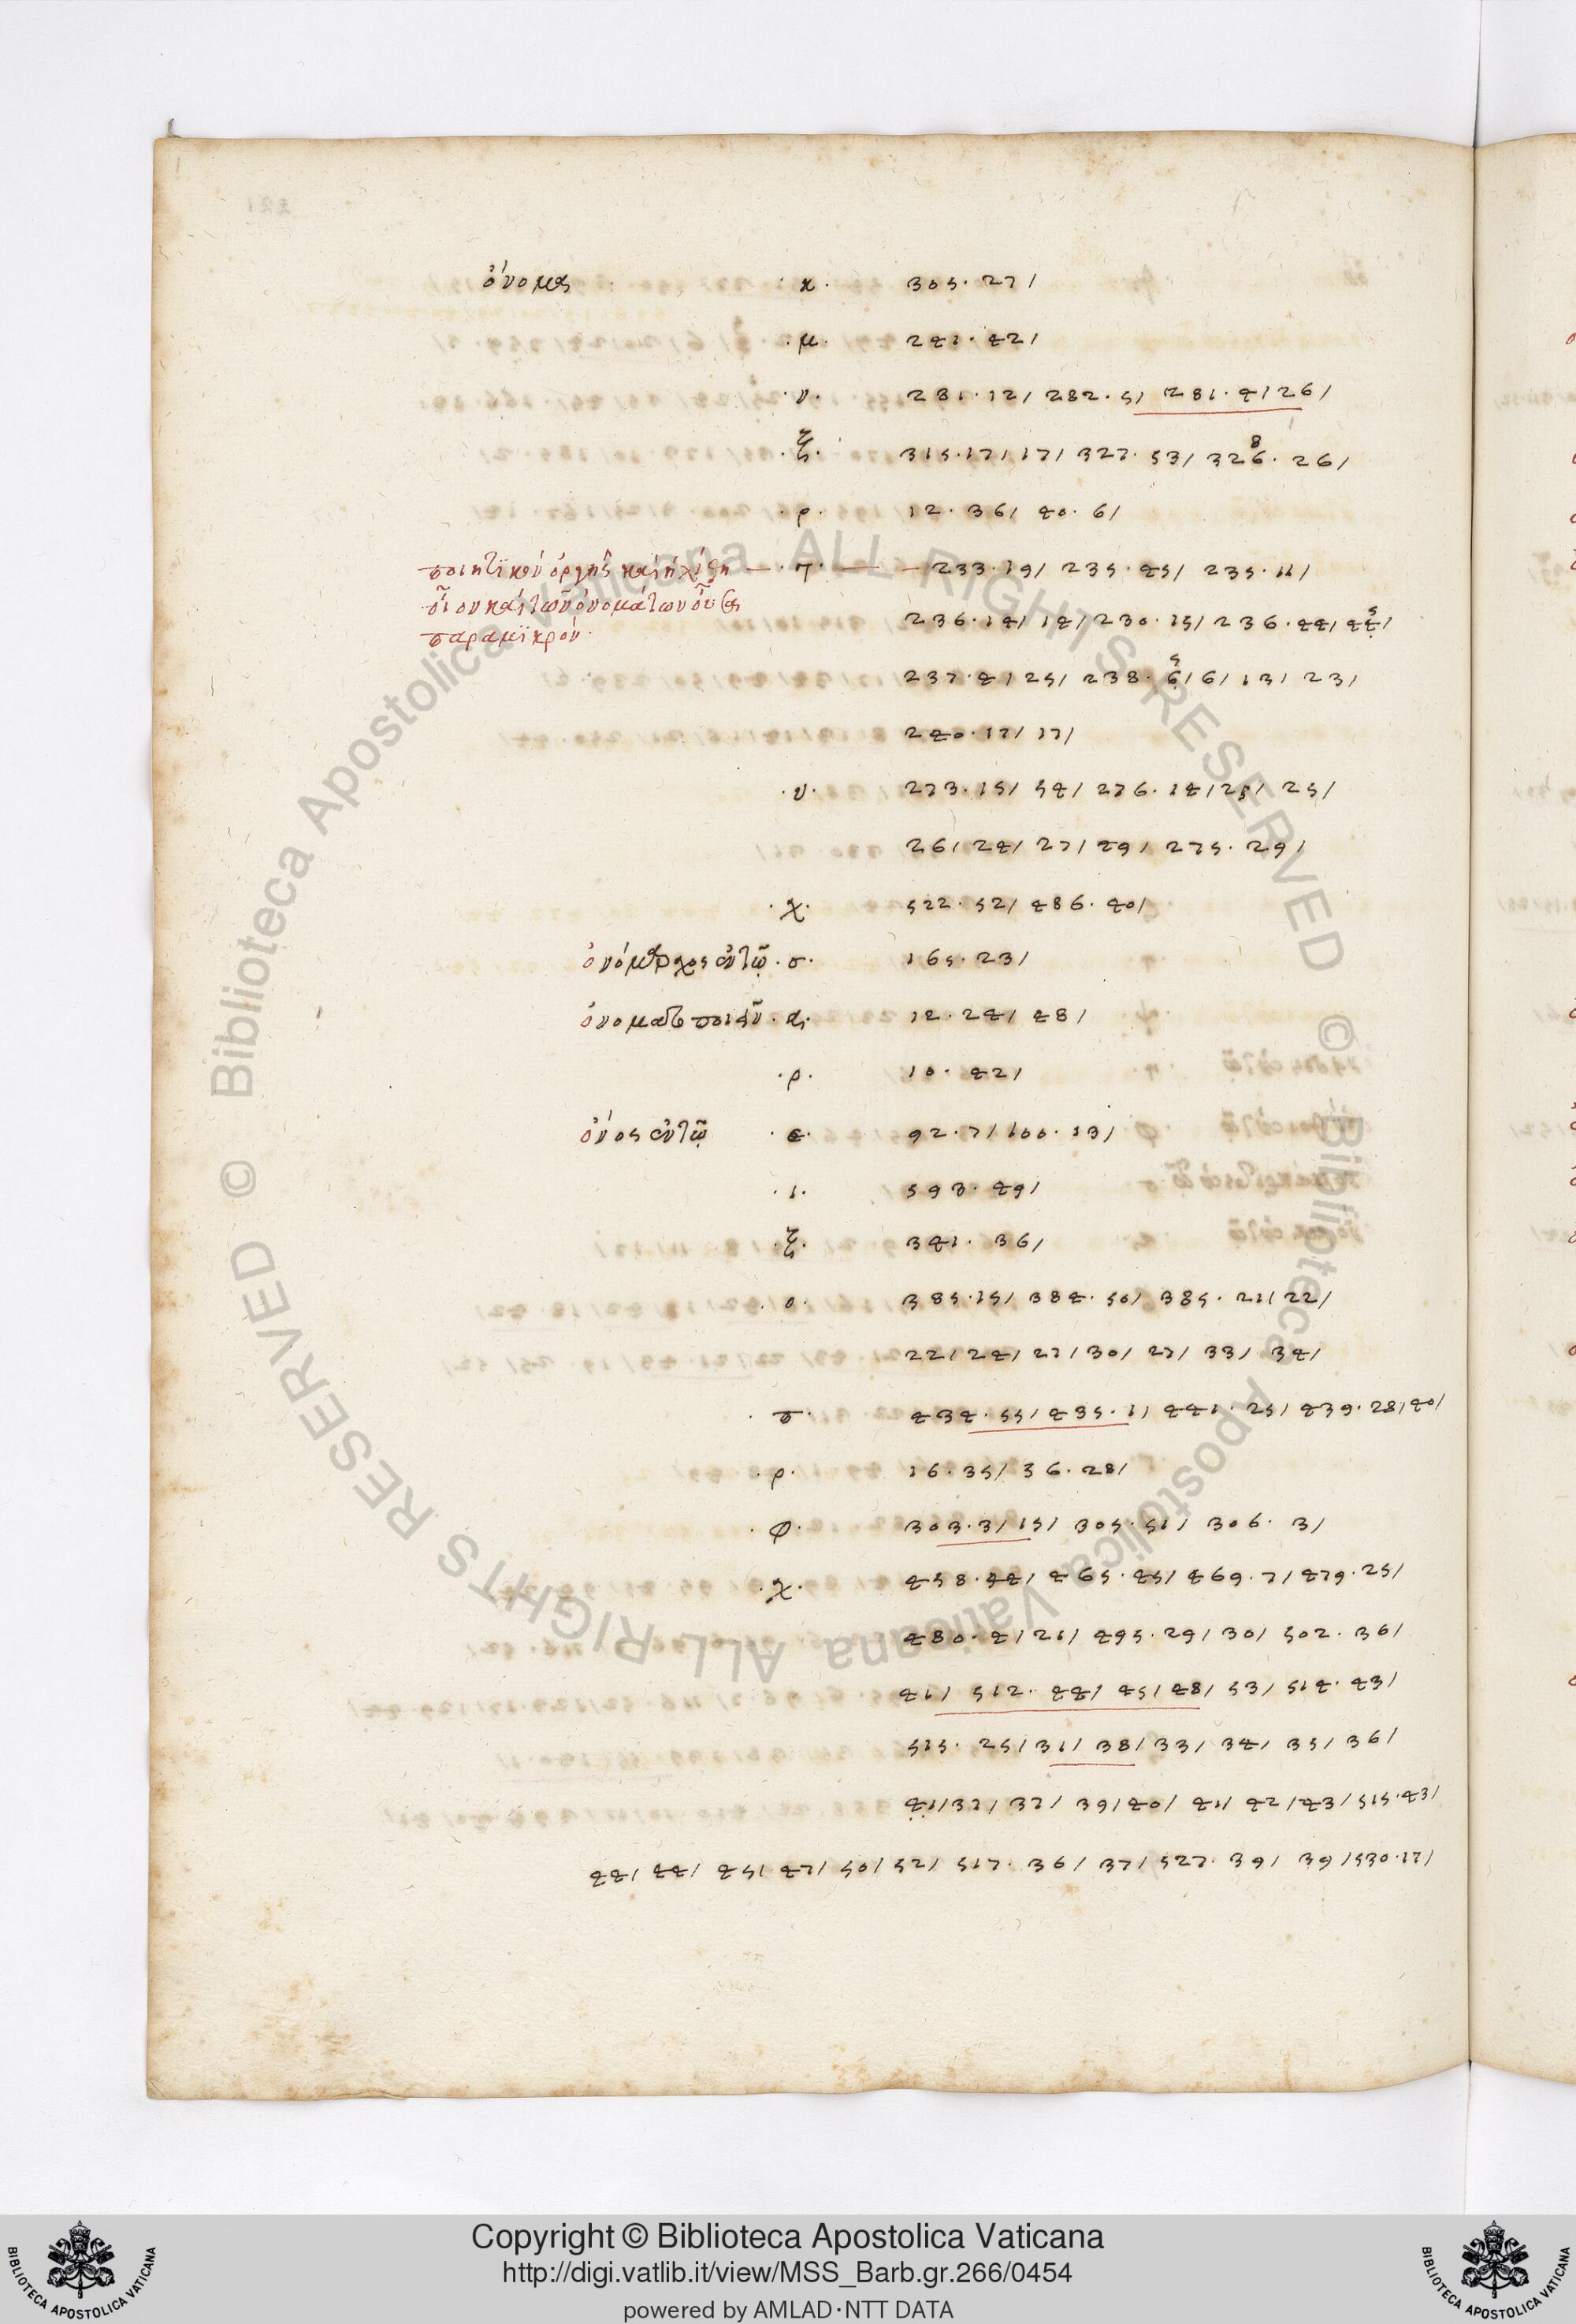 ὄνομα · κ · 305 · 27 /
· μ · 241 · 42 /
· ν · 281 · 12 / 282 · 5 / 281 · 4 / 26 /
· ξ · 315 · 17 / 17 / 327 · 53 / 326 · 26 /
· ρ · 12 · 36 / 40 · 6 /
233 · 19 / 235 · 45 / 235 · 11 /
236 · 14 / 14 / 230 · 15 / 236 · 44 /
παραμϊκρόν ·
237 · 4 / 25 / 238 · 6 / 6 / 13 / 23 /
240 · 17 / 17 /
· υ · 273 · 15 / 54 / 276 · 14 / 25 / 25 /
26 / 24 / 27 / 29 / 275 · 29 /
· χ · 522 · 52 / 486 · 40 /
· σ · 165 · 23 /
· α · 12 · 24 / 48 /
· ρ · 10 · 42 /
ὄνος · ε · 92 · 7 / 100 · 13 /
· ι · 593 · 49 /
· ξ · 341 · 36 /
· ο · 385 · 15 / 384 · 50 / 385 · 21 / 22 /
22 / 24 / 27 / 30 / 27 / 33 / 34 /
· π · 434 · 55 / 435 · 1 / 441 · 25 / 439 · 28 / 40 /
· ρ · 16 · 35 / 36 · 28 /
· φ · 303 · 3 / 15 / 305 · 51 / 306 · 3 /
· χ · 458 · 44 / 465 · 45 / 469 · 7 / 479 · 25 /
480 · 4 / 21 / 495 · 29 / 30 / 502 · 36 /
41 / 512 · 44 / 45 / 48 / 53 / 514 · 43 /
515 · 25 / 31 / 38 / 33 / 34 / 35 / 36 /
41 / 37 / 37 / 39 / 40 / 41 / 42 / 43 / 515 · 43 /
44 / 44 / 45 / 47 / 50 / 52 / 517 · 36 / 37 / 527 · 39 / 39 / 530 · 17 /
© Biblioteca Apostolica Vaticana ALL RIGHTS RESERVED © Biblioteca Apostolica Vaticana ALL RIGHTS RESERVED
Copyright © Biblioteca Apostolica Vaticana
http://digi.vatlib.it/view/MSS_Barb.gr.266/0454
powered by AMLAD·NTT DATA
BIBLIOTECA APOSTOLICA VATICANA
BIBLIOTECA APOSTOLICA VATICANA